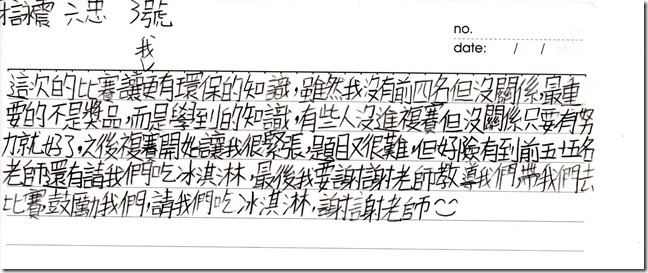 六忠 3號
no.
date: / /
我
這次的比賽讓更有環保的知識,雖然我沒有前四名但沒關係,最重
要的不是獎品,而是學到的知識,有些人沒進複賽但沒關係只要有努
力就好了,之後複賽開始讓我很緊張,題目又很難,但好險有到前五十五名
老師還有請我們吃冰淇淋,最後我要謝謝老師教導我們,帶我們去
比賽,鼓勵我們,請我們吃冰淇淋,謝謝老師